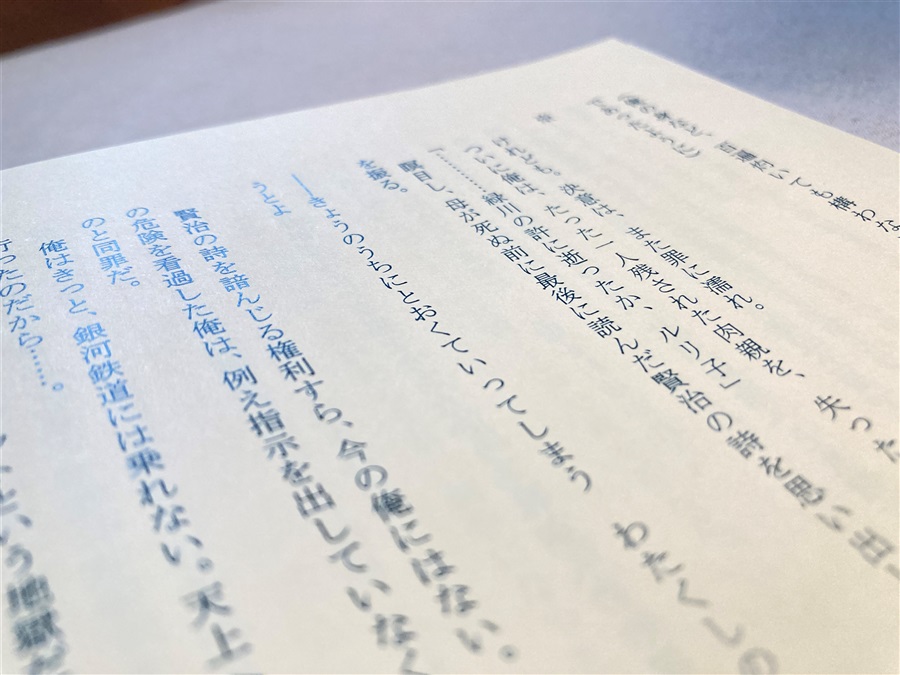 百遍灼いても構わな
であったようと)
けれども。決意は、また罪に濡れ。
ついに俺は、たった一人残された肉親を、失った
「………緑川の許に逝ったか、ルリ子」
瞑目し、母が死ぬ前に最後に読んだ賢治の詩を思い出
を振る。
――きょうのうちにとおくていってしまう わたくしの
うとよ
賢治の詩を諳んじる権利すら、今の俺にはない。
の危険を看過した俺は、例え指示を出していなく
のと同罪だ。
俺はきっと、銀河鉄道には乗れない。天上
行ったのだから……。
という地獄だ